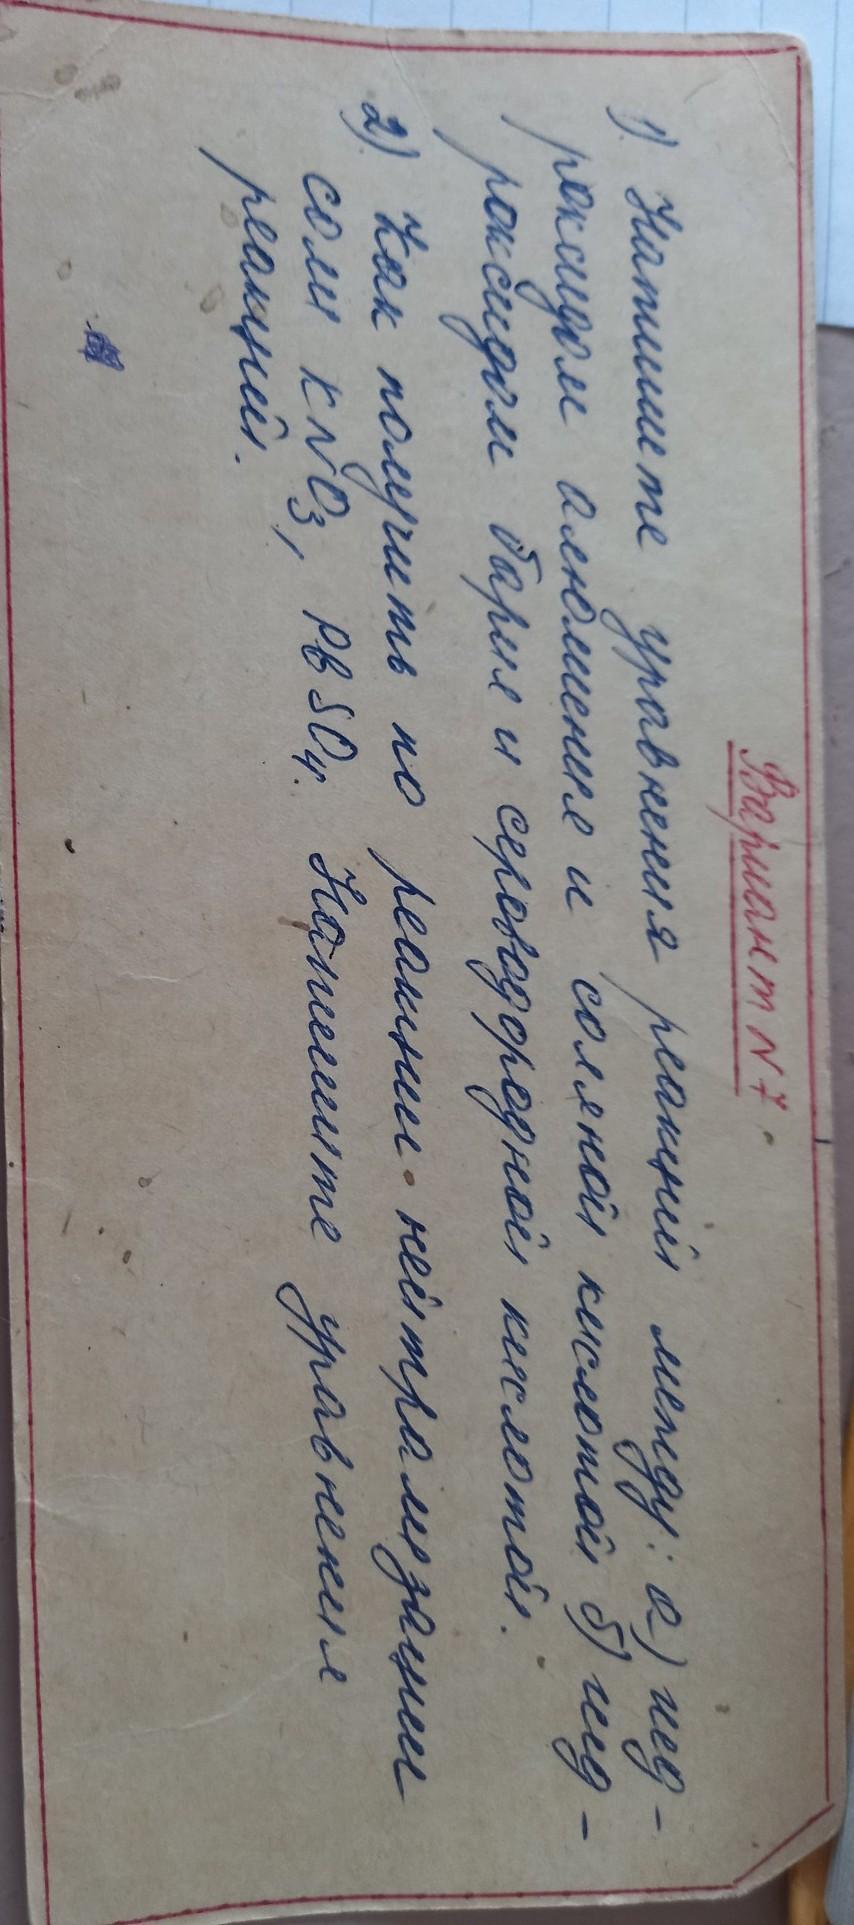 Вариант N 7.
1). Напишите уравнения реакций между: а) гид-
роксидом алюминия и соляной кислотой б) гид-
роксидом бария и сероводородной кислотой.
2). Как получить по реакции нейтрализации
соли KNO3, PbSO4. Напишите уравнения
реакций.